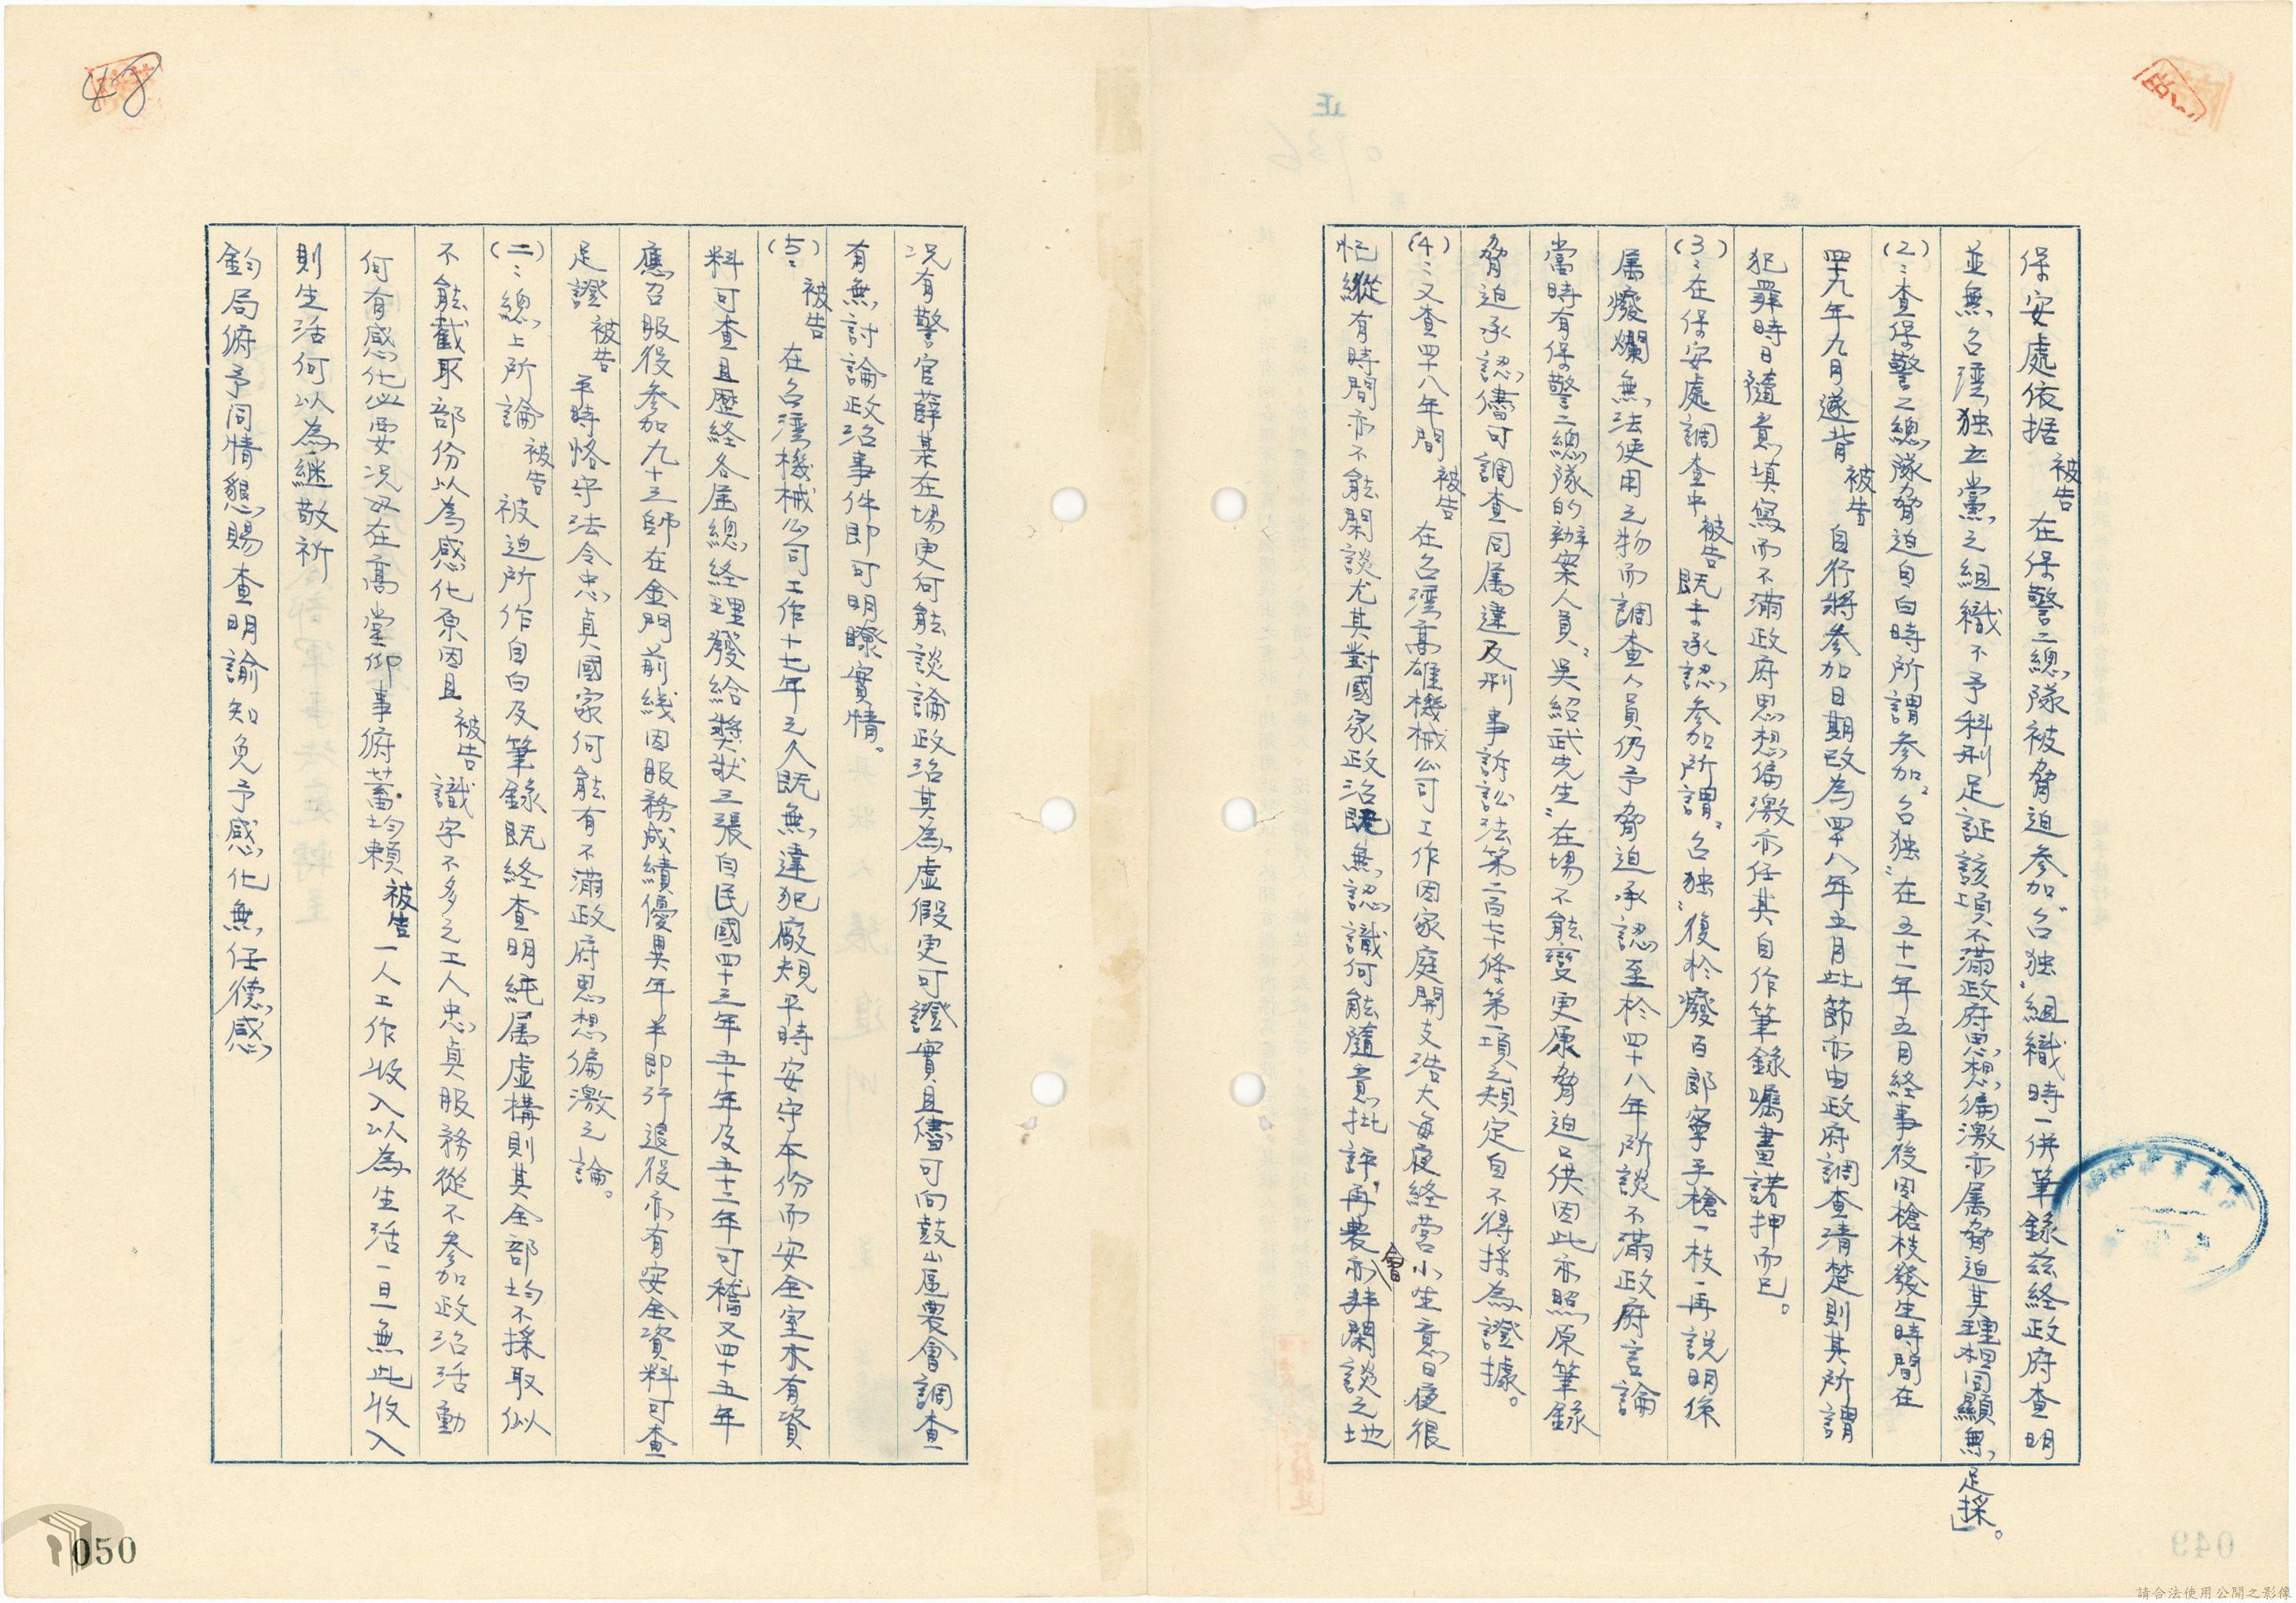 保安處依据被告在保警二總隊被脅迫参加“台独”組織時一併筆錄茲経政府查明
並無台湾独立黨之組織不予科刑足証該項不滿政府思想偏激亦属脅迫其理相同顯無足採」。
(2)：查保警二總隊脅迫自白時所謂参加“台独”在五十一年五月経事後因槍枝發生時間在
四十九年九月遂背被告自行將参加日期改為四十八年五月此節亦由政府調查清楚則其所謂
犯罪時日隨意填寫而不滿政府思想偏激亦任其自作筆錄囑畫諸押而已。
(3)：在保安處調查中被告既未承認参加所謂“台独”復於癈百郎寧手槍一枝一再説明係
属癈爛無法使用之物而調查人員仍予脅迫承認至於四十八年所談不滿政府言論
當時有保警二總隊的辦案人員“吳紹武先生”在場不能變更原脅迫口供因此亦照原筆錄
脅迫承認儘可調查同属違反刑事訴訟法第二百七十條第一項之規定自不得採為證據。
(4)：又查四十八年間被告在台湾高雄機械公司工作因家庭開支浩大每夜経营小生意日夜很
忙縱有時間亦不能閑談尤其對國家政治既無認識何能隨意批評再農會亦非閑談之地
况有警官薛某在場更何能談論政治其為虚假更可證實且儘可向鼓山區農會調查
有無討論政治事件即可明瞭實情。
(5)：被告在台湾機械公司工作十七年之久既無違犯廠規平時安守本份而安全室亦有資
料可查且歷経各届總経理發給獎狀三張自民國四十三年五十年及五十二年可稽又四十五年
應召服役参加九十三師在金門前綫因服務成績優異年半即行退役亦有安全資料可查
足證被告平時恪守法令忠貞國家何能有不滿政府思想偏激之論。
(二)：總上所論被告被迫所作自白及筆錄既経查明純属虚構則其全部均不採取似
不能截取部份以為感化原因且被告識字不多之工人忠貞服務從不参加政治活動
何有感化必要况双在高堂仰事俯蓄均賴被告一人工作收入以為生活一旦無此收入
則生活何以為継敬祈
鈞局俯予同情懇賜查明諭知免予感化無任德感
48
正
050
請合法使用公開之影像